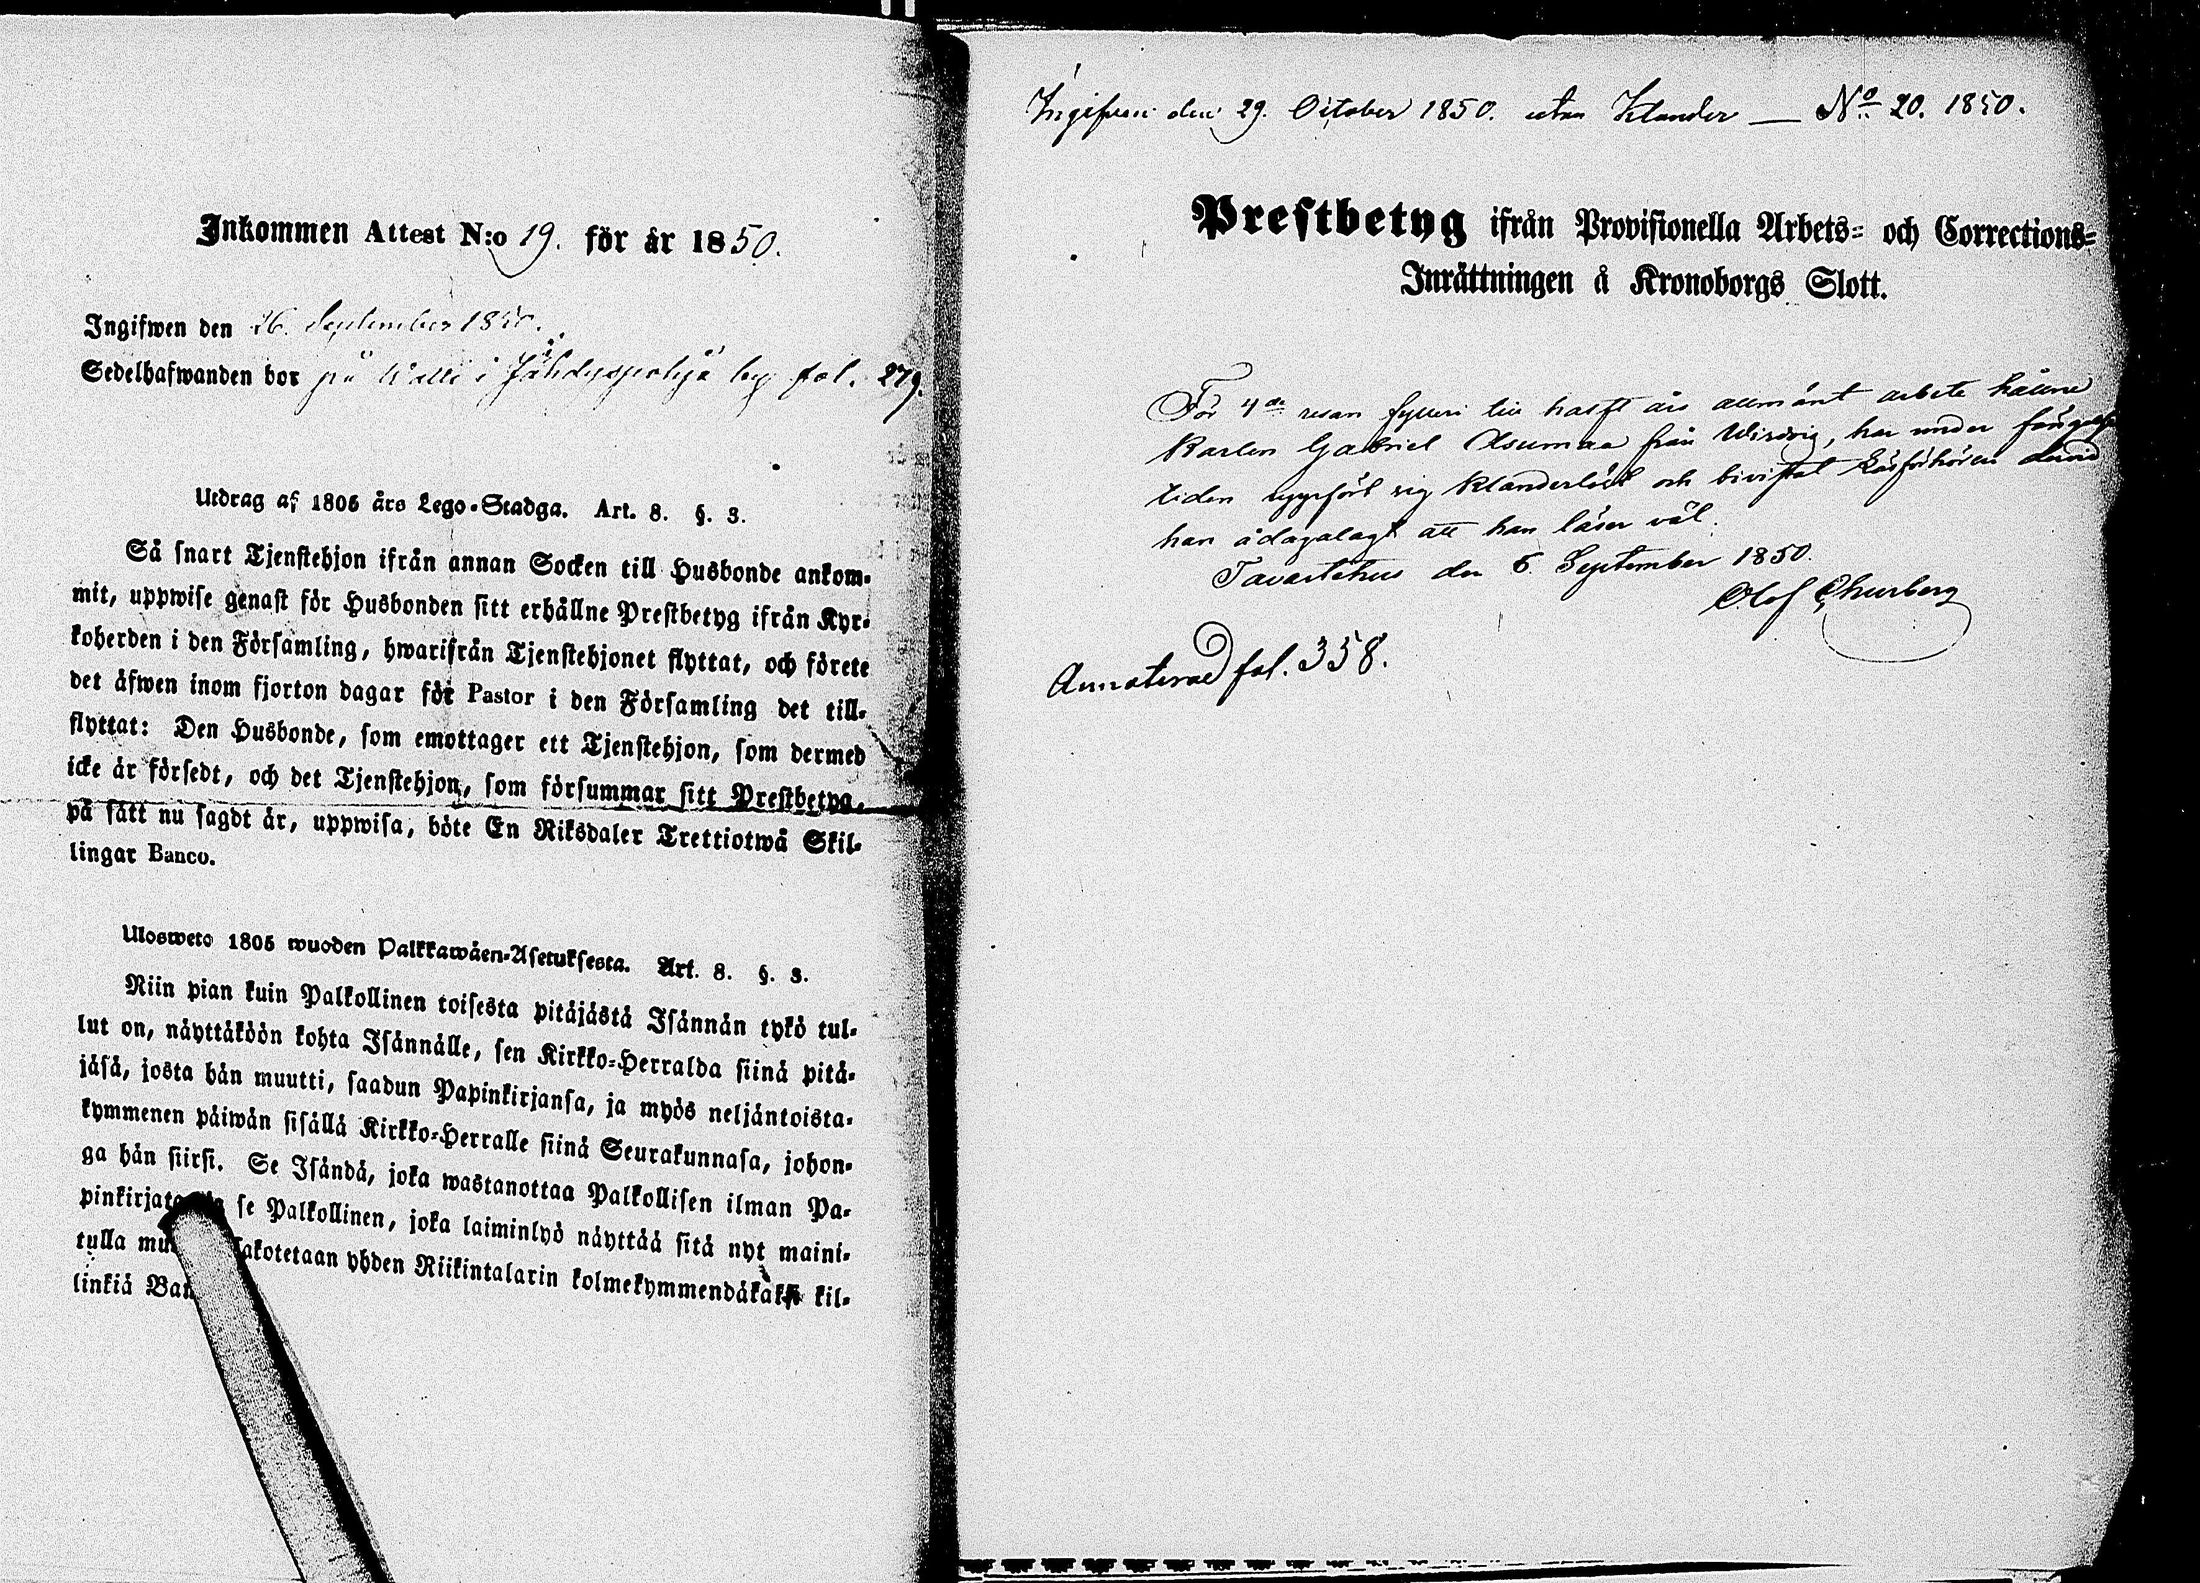 Inkommen Attest N:o 19. för år 1850.
Ingifwen den 26. September 1850.
Sedelhafwanden bor på Walli i Jähdyspohja by fol. 279.
Utdrag af 1805 års Lego-Stadga. Art. 8. §. 3.
Så snart Tjenstehjon ifrån annan Socken till Husbonde ankom-
mit, uppwise genast för Husbonden sitt erhållne Prestbetyg ifrån Kyr-
koherden i den Församling, hwarifrån Tjenstehjonet flyttat, och förete
det äfwen inom fjorton dagar för Pastor i den Församling det till-
flyttat: Den Husbonde, som emottager ett Tjenstehjon, som dermed
icke är försedt, och det Tjenstehjon, som försummar sitt Prestbetyg,
på sätt nu sagdt är, uppwisa, böte En Riksdaler Trettiotwå Skil-
lingar Banco.
Ulosweto 1805 wuoden Palkkawäen-Asetuksesta. Art. 8. §. 3.
Niin pian kuin Palkollinen toisesta pitäjästä Isännän tykö tul-
lut on, näyttäköön kohta Isännälle, sen Kirkko-Herralda siinä pitä-
jäsä, josta hän muutti, saadun Papinkirjansa, ja myös neljäntoista-
kymmenen päiwän sisällä Kirkko-Herralle siinä Seurakunnasa, johon-
ga hän siirsi. Se Isändä, joka wastanottaa Palkollisen ilman Pa-
se Palkollinen, joka laiminlyö näyttää sitä nyt maini-
tulla yhden Riikintalarin kolmekymmendäkaksi kil-
linkiä
Ingifven den 29. October 1850. utan Klander — No 20. 1850.
Prestbetyg ifrån Provisionella Arbets- och Corrections-
Inrättningen å Kronoborgs Slott.
För 4de resan fylleri till halft års allmänt arbete hållne
Karlen Gabriel Asumaa från Wirdois, har under fängelse
tiden uppfört sig klanderlöst och bivistat Läsförhören hvarvid
han ådagalagt att han läser väl.
Tavastehus den 6. September 1850.
Olof Churberg
Annoterad fol. 358.